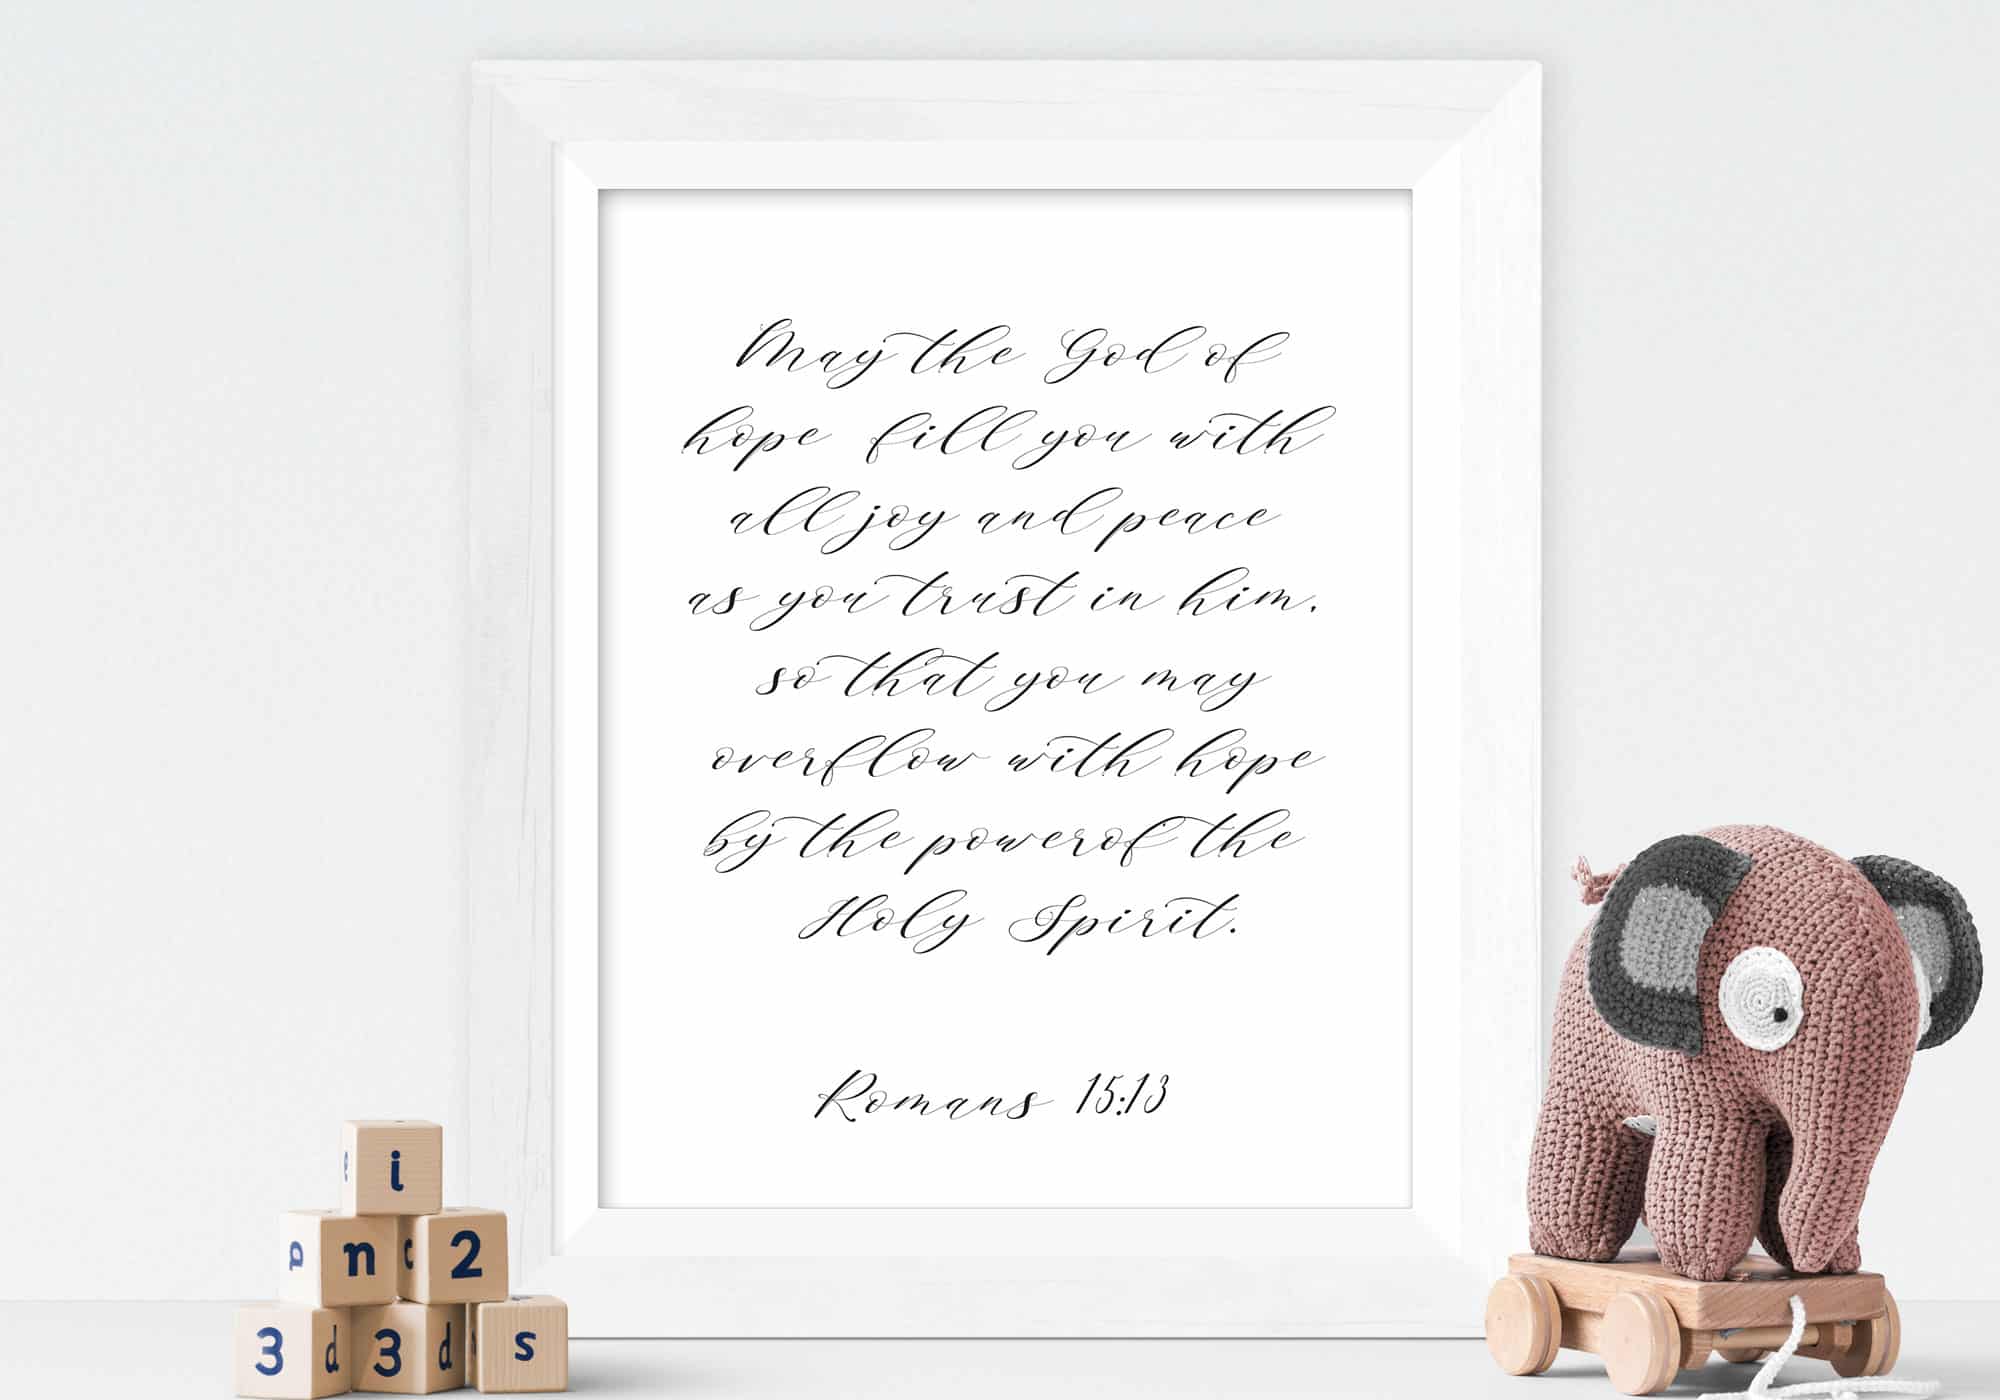 May the God of
hope fill you with
all joy and peace
as you trust in him,
so that you may
overflow with hope
by the powerof the
Holy Spirit.
Romans 15:13
e i
p n c 2
3 d 3 d s